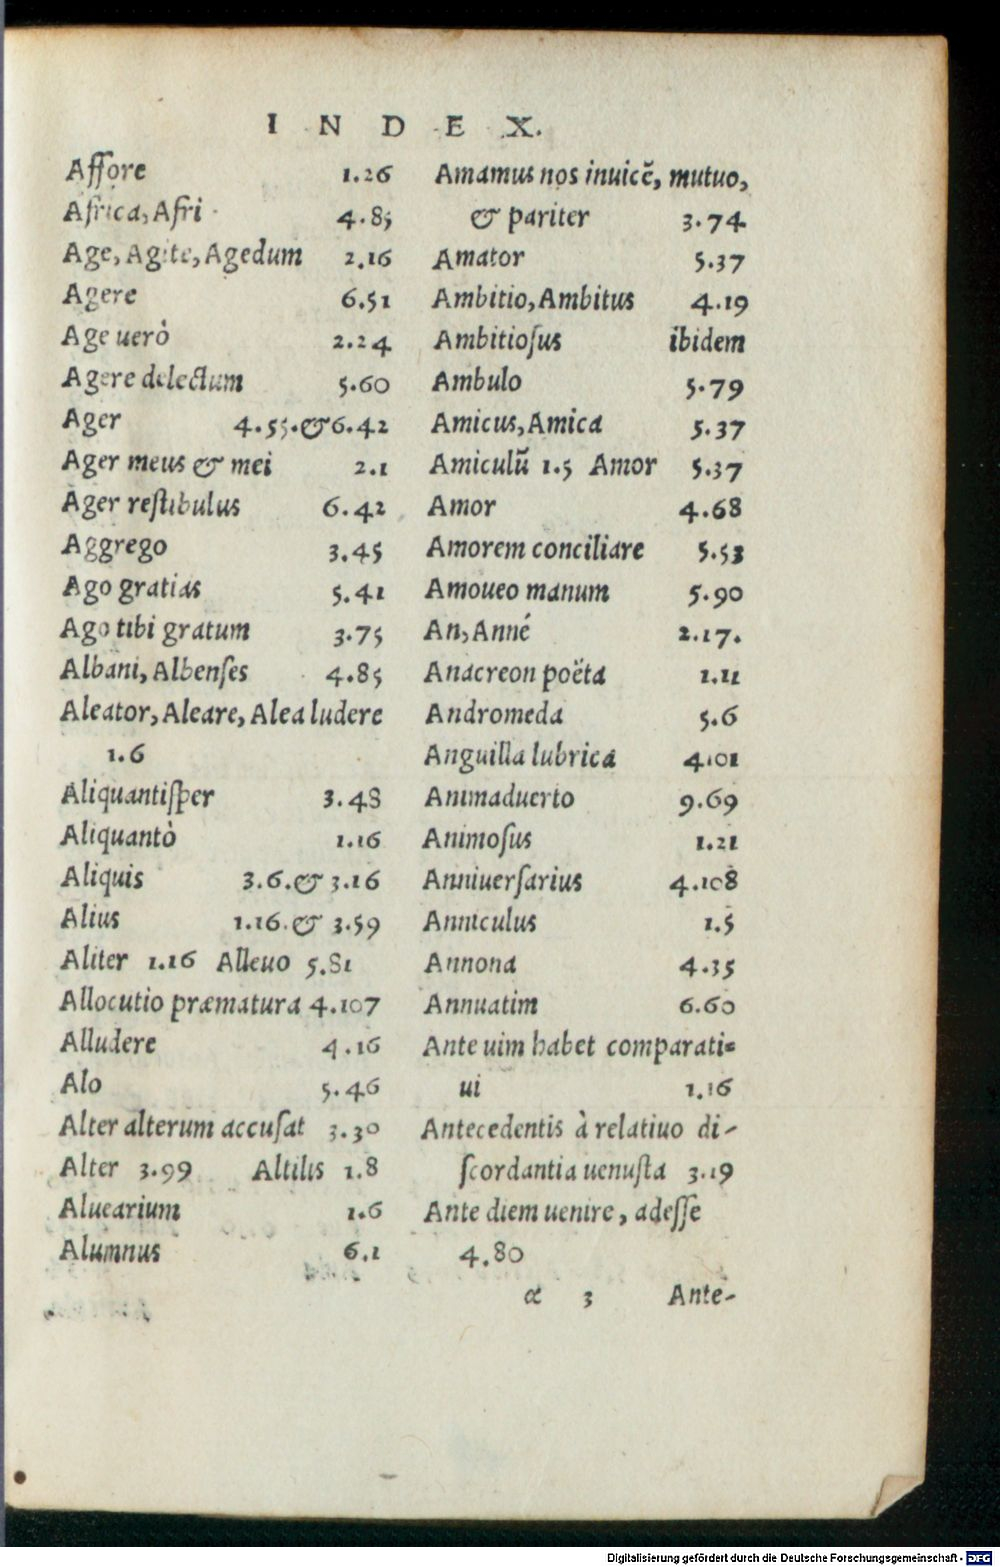 INDEX.
Affore 1.26
Africa, Afri 4.85
Age, Agite, Agedum 2.16
Agere 6.51
Age uerò 2.24
Agere delectum 5.60
Ager 4.55.& 6.42
Ager meus & mei 2.1
Ager restibulus 6.42
Aggrego 3.45
Ago gratias 5.41
Ago tibi gratum 3.75
Albani, Albenses 4.85
Aleator, Aleare, Alea ludere
1.6
Aliquantisper 3.48
Aliquantò 1.16
Aliquis 3.6.& 3.16
Alius 1.16.& 3.59
Aliter 1.16 Alleuo 5.81
Allocutio præmatura 4.107
Alludere 4.16
Alo 5.46
Alter alterum accusat 3.30
Alter 3.99 Altilis 1.8
Aluearium 1.6
Alumnus 6.1
Amamus nos inuicẽ, mutuo,
& pariter 3.74
Amator 5.37
Ambitio, Ambitus 4.19
Ambitiosus ibidem
Ambulo 5.79
Amicus, Amica 5.37
Amiculũ 1.5 Amor 5.37
Amor 4.68
Amorem conciliare 5.53
Amoueo manum 5.90
An, Anné 2.17.
Anacreon poëta 1.11
Andromeda 5.6
Anguilla lubrica 4.101
Animaduerto 9.69
Animosus 1.21
Anniuersarius 4.108
Anniculus 1.5
Annona 4.35
Annuatim 6.60
Ante uim habet comparati=
ui 1.16
Antecedentis à relatiuo di-
scordantia uenusta 3.19
Ante diem uenire, adesse
4.80
α 3 Ante-
Digitalisierung gefördert durch die Deutsche Forschungsgemeinschaft - DFG